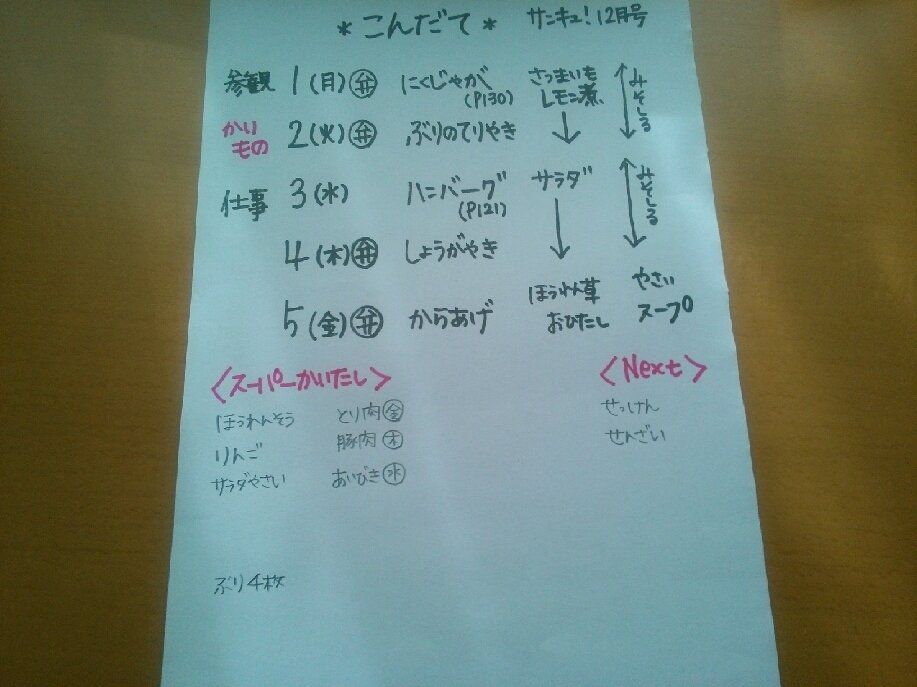 *こんだて* サンキュ!12月号
参観 1(月)弁 にくじゃが(P130) さつまいもレモン煮 みそしる
かいもの 2(火)弁 ぶりのてりやき
仕事 3(水) ハンバーグ(P121) サラダ みそしる
4(木)弁 しょうがやき
5(金)弁 からあげ ほうれん草おひたし やさいスープ
<スーパーかいたし> <Next>
ほうれんそう とり肉金 せっけん
りんご 豚肉木 せんざい
サラダやさい あいびき水
ぶり4枚